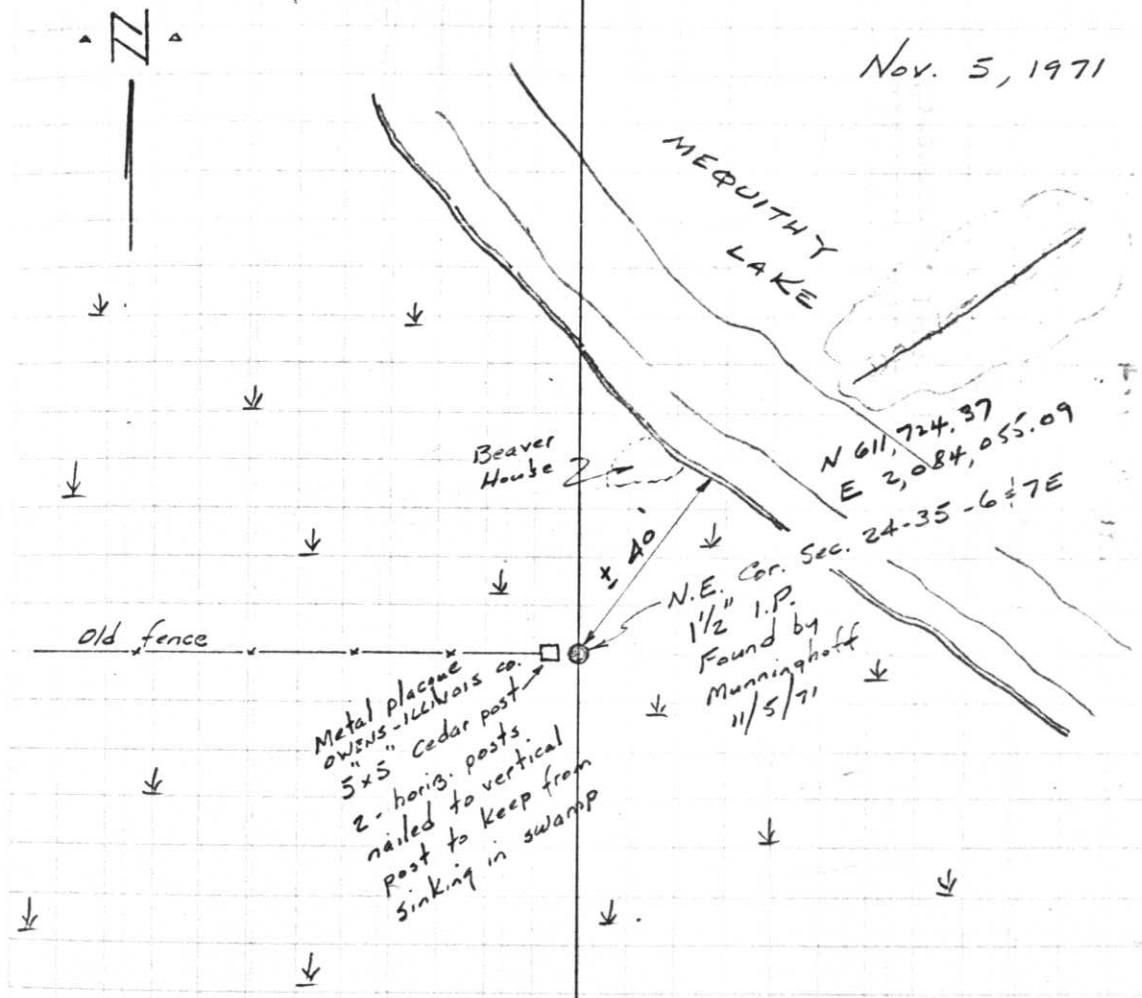 N
Nov. 5, 1971
MEQUITHY
LAKE
N 611,724.37
E 2,084,055.09
Beaver
House
± 40
N.E. Cor. Sec. 24-35-6 & 7E
1 1/2" I.P.
Found by
Munninghoff
11/5/71
Old fence
Metal placque
OWENS-ILLINOIS CO.
5"x5" cedar post
2- horiz. posts
nailed to vertical
post to keep from
sinking in swamp